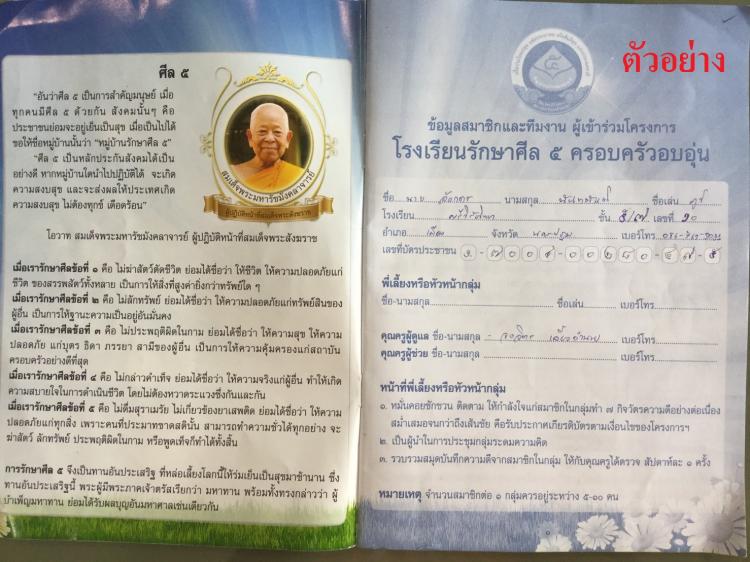 ศีล ๕
"อันว่าศีล ๕ เป็นการสำคัญมนุษย์ เมื่อ
ทุกคนมีศีล ๕ ด้วยกัน สังคมนั้นๆ คือ
ประชาชนย่อมจะอยู่เย็นเป็นสุข เมื่อเป็นไปได้
ขอให้ชื่อหมู่บ้านนั้นว่า "หมู่บ้านรักษาศีล ๕"
"ศีล ๕ เป็นหลักประกันสังคมได้เป็น
อย่างดี หากหมู่บ้านใดนำไปปฏิบัติได้ จะเกิด
ความสงบสุข และจะส่งผลให้ประเทศเกิด
ความสงบสุข ไม่ต้องทุกข์ เดือดร้อน"
สมเด็จพระมหารัชมังคลาจารย์
ผู้ปฏิบัติหน้าที่สมเด็จพระสังฆราช
โอวาท สมเด็จพระมหารัชมังคลาจารย์ ผู้ปฏิบัติหน้าที่สมเด็จพระสังฆราช
เมื่อเรารักษาศีลข้อที่ ๑ คือ ไม่ฆ่าสัตว์ตัดชีวิต ย่อมได้ชื่อว่า ให้ชีวิต ให้ความปลอดภัยแก่
ชีวิต ของสรรพสัตว์ทั้งหลาย เป็นการให้สิ่งที่สูงค่ายิ่งกว่าทรัพย์ใด ๆ
เมื่อเรารักษาศีลข้อที่ ๒ คือ ไม่ลักทรัพย์ ย่อมได้ชื่อว่า ให้ความปลอดภัยแก่ทรัพย์สินของ
ผู้อื่น เป็นการให้ฐานะความเป็นอยู่อันมั่นคง
เมื่อเรารักษาศีลข้อที่ ๓ คือ ไม่ประพฤติผิดในกาม ย่อมได้ชื่อว่า ให้ความสุข ให้ความ
ปลอดภัย แก่บุตร ธิดา ภรรยา สามีของผู้อื่น เป็นการให้ความคุ้มครองแก่สถาบัน
ครอบครัวอย่างดีที่สุด
เมื่อเรารักษาศีลข้อที่ ๔ คือ ไม่กล่าวคำเท็จ ย่อมได้ชื่อว่า ให้ความจริงแก่ผู้อื่น ทำให้เกิด
ความสบายใจในการดำเนินชีวิต โดยไม่ต้องหวาดระแวงซึ่งกันและกัน
เมื่อเรารักษาศีลข้อที่ ๕ คือ ไม่ดื่มสุราเมรัย ไม่เกี่ยวข้องยาเสพติด ย่อมได้ชื่อว่า ให้ความ
ปลอดภัยแก่ทุกสิ่ง เพราะคนที่ประมาทขาดสตินั้น สามารถทำความชั่วได้ทุกอย่าง จะ
ฆ่าสัตว์ ลักทรัพย์ ประพฤติผิดในกาม หรือพูดเท็จก็ทำได้ทั้งสิ้น
การรักษาศีล ๕ จึงเป็นทานอันประเสริฐ ที่หล่อเลี้ยงโลกนี้ให้ร่มเย็นเป็นสุขมาช้านาน ซึ่ง
ทานอันประเสริฐนี้ พระผู้มีพระภาคเจ้าตรัสเรียกว่า มหาทาน พร้อมทั้งทรงกล่าวว่า ผู้
บำเพ็ญมหาทาน ย่อมได้รับผลบุญอันมหาศาลเช่นเดียวกัน
ตัวอย่าง
ข้อมูลสมาชิกและทีมงาน ผู้เข้าร่วมโครงการ
โรงเรียนรักษาศีล ๕ ครอบครัวอบอุ่น
ชื่อ นาย นามสกุล ชื่อเล่น
โรงเรียน ชั้น ๕/๗ เลขที่ ๒๐
อำเภอ เมือง จังหวัด นครปฐม เบอร์โทร
เลขที่บัตรประชาชน
พี่เลี้ยงหรือหัวหน้ากลุ่ม
ชื่อ-นามสกุล ชื่อเล่น เบอร์โทร
คุณครูผู้ดูแล ชื่อ-นามสกุล เบอร์โทร
คุณครูผู้ช่วย ชื่อ-นามสกุล เบอร์โทร
หน้าที่พี่เลี้ยงหรือหัวหน้ากลุ่ม
๑. หมั่นคอยชักชวน ติดตาม ให้กำลังใจแก่สมาชิกในกลุ่มทำ ๗ กิจวัตรความดีอย่างต่อเนื่อง
สม่ำเสมอจนกว่าถึงเส้นชัย คือรับประกาศเกียรติบัตรตามเงื่อนไขของโครงการฯ
๒. เป็นผู้นำในการประชุมกลุ่มระดมความคิด
๓. รวบรวมสมุดบันทึกความดีจากสมาชิกในกลุ่ม ให้กับคุณครูได้ตรวจ สัปดาห์ละ ๑ ครั้ง
หมายเหตุ จำนวนสมาชิกต่อ ๑ กลุ่มควรอยู่ระหว่าง ๕-๑๐ คน